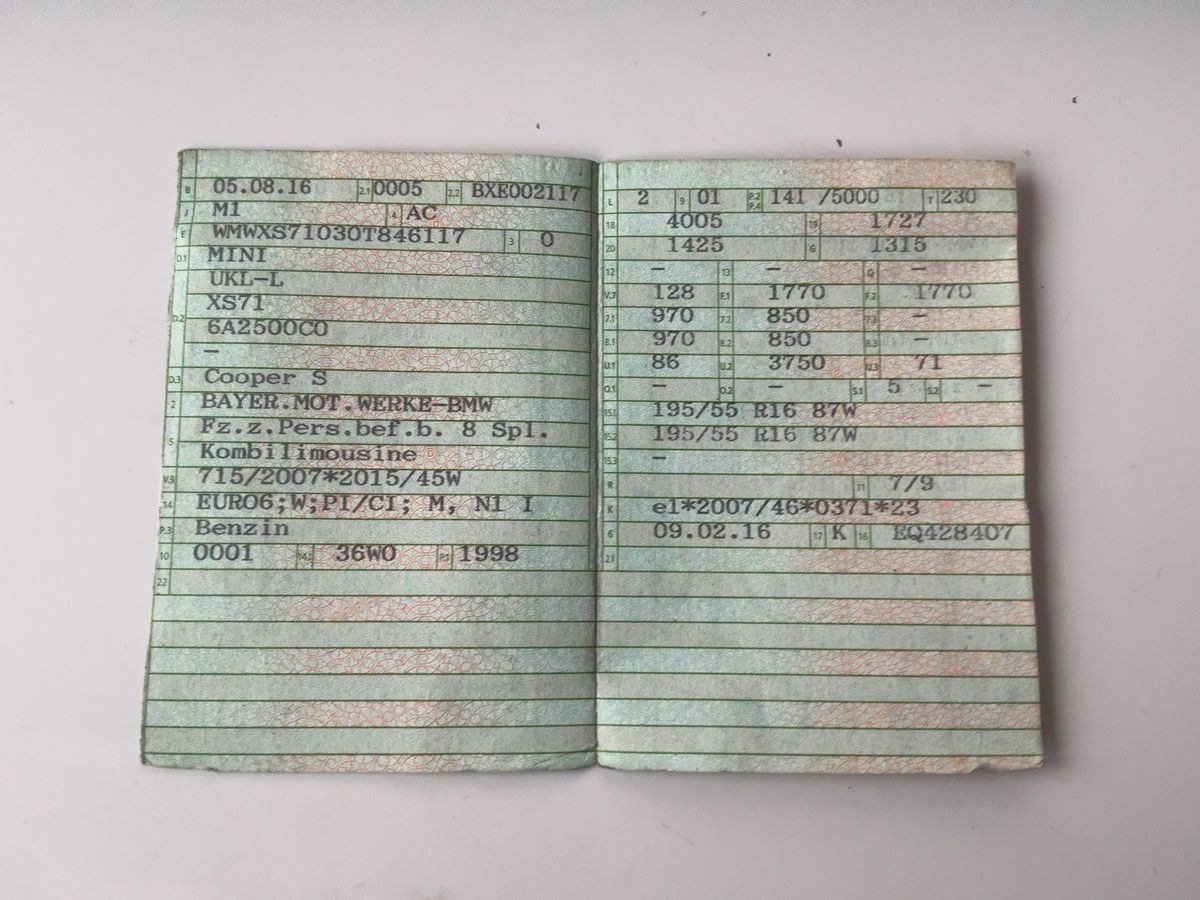 B 05.08.16 2.1 0005 2.2 BXE002117
J M1 4 AC
E WMWXS71030T846117 3 0
D.1 MINI
UKL-L
D.2 XS71
6A2500C0
–
D.3 Cooper S
2 BAYER.MOT.WERKE-BMW
Fz.z.Pers.bef.b. 8 Spl.
5 Kombilimousine
V.9 715/2007*2015/45W
14 EURO6;W;PI/CI; M, N1 I
P.3 Benzin
10 0001 14.1 36W0 P.1 1998
22
L 2 9 01 P.2 P.4 141 /5000 T 230
18 4005 19 1727
20 1425 G 1315
12 – 13 – Q –
V.7 128 F.1 1770 F.2 1770
7.1 970 7.2 850 7.3 –
8.1 970 8.2 850 8.3 –
U.1 86 U.2 3750 U.3 71
O.1 – O.2 – S.1 5 S.2 –
15.1 195/55 R16 87W
15.2 195/55 R16 87W
15.3 –
R 11 7/9
K e1*2007/46*0371*23
6 09.02.16 17 K 16 EQ428407
21